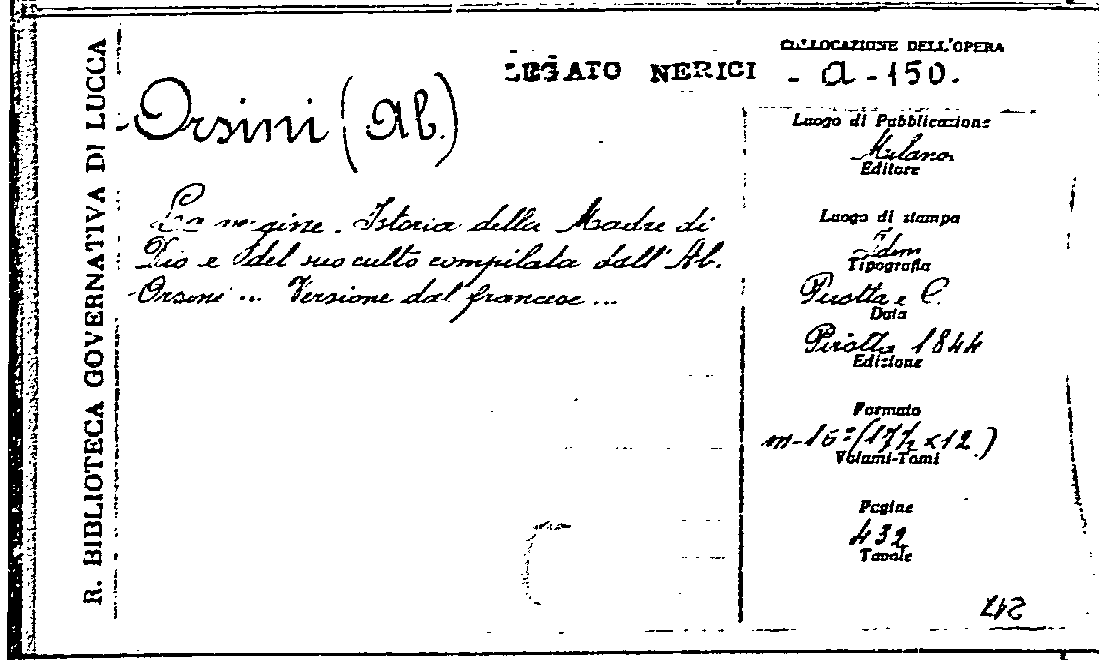 R. BIBLIOTECA GOVERNATIVA DI LUCCA
LEGATO NERICI
COLLOCAZIONE DELL'OPERA
- A - 150.
Orsini (Ab.)
La vergine. Istoria della Madre di
Dio e del suo culto compilata dall'Ab.
Orsini ... Versione dal francese ...
Luogo di Pubblicazione
Milano
Editore
Luogo di stampa
Idem
Tipografia
Pirotta e C.
Data
Pirotta 1844
Edizione
Formato
in-16º (17½ x 12.)
Volumi-Tomi
Pagine
432
Tavole